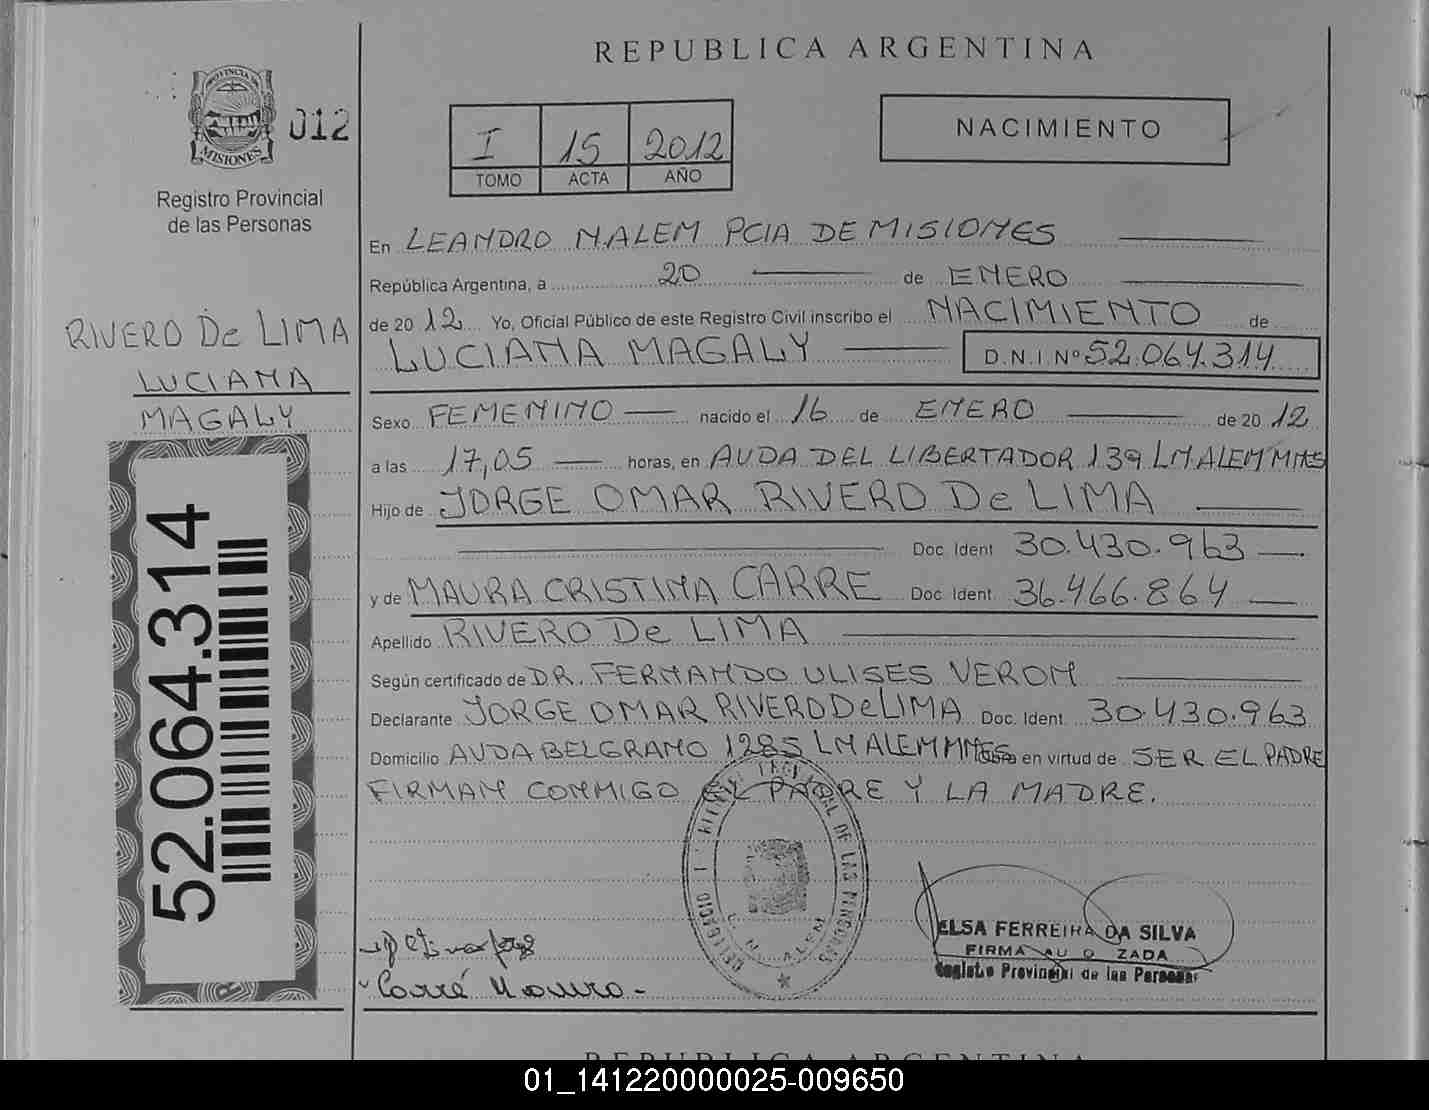 REPUBLICA ARGENTINA
PROVINCIA DE
MISIONES
012
Registro Provincial
de las Personas
I 15 2012
TOMO ACTA AÑO
NACIMIENTO
RIVERO De LIMA
LUCIANA
MAGALY
52.064.314
En LEANDRO N.ALEM PCIA DE MISIONES
República Argentina, a 20 de ENERO
de 20 12 Yo, Oficial Público de este Registro Civil inscribo el NACIMIENTO de
LUCIANA MAGALY D.N.I. Nº 52.064.314
Sexo FEMENINO nacido el 16 de ENERO de 20 12
a las 17,05 horas, en AVDA DEL LIBERTADOR 139 LN ALEM MNES
Hijo de JORGE OMAR RIVERO De LIMA
Doc. Ident 30.430.963
y de MAURA CRISTINA CARRE Doc. Ident. 36.466.864
Apellido RIVERO De LIMA
Según certificado de DR. FERNANDO ULISES VERON
Declarante JORGE OMAR RIVERO De LIMA Doc. Ident. 30.430.963
Domicilio AVDA BELGRANO 1285 LN ALEM MNES en virtud de SER EL PADRE
FIRMAN CONMIGO EL PADRE Y LA MADRE.
Carré Maura
ELSA FERREIRA DA SILVA
FIRMA AU O ZADA
Registro Provincial de las Personas
REPUBLICA ARGENTINA
01_141220000025-009650